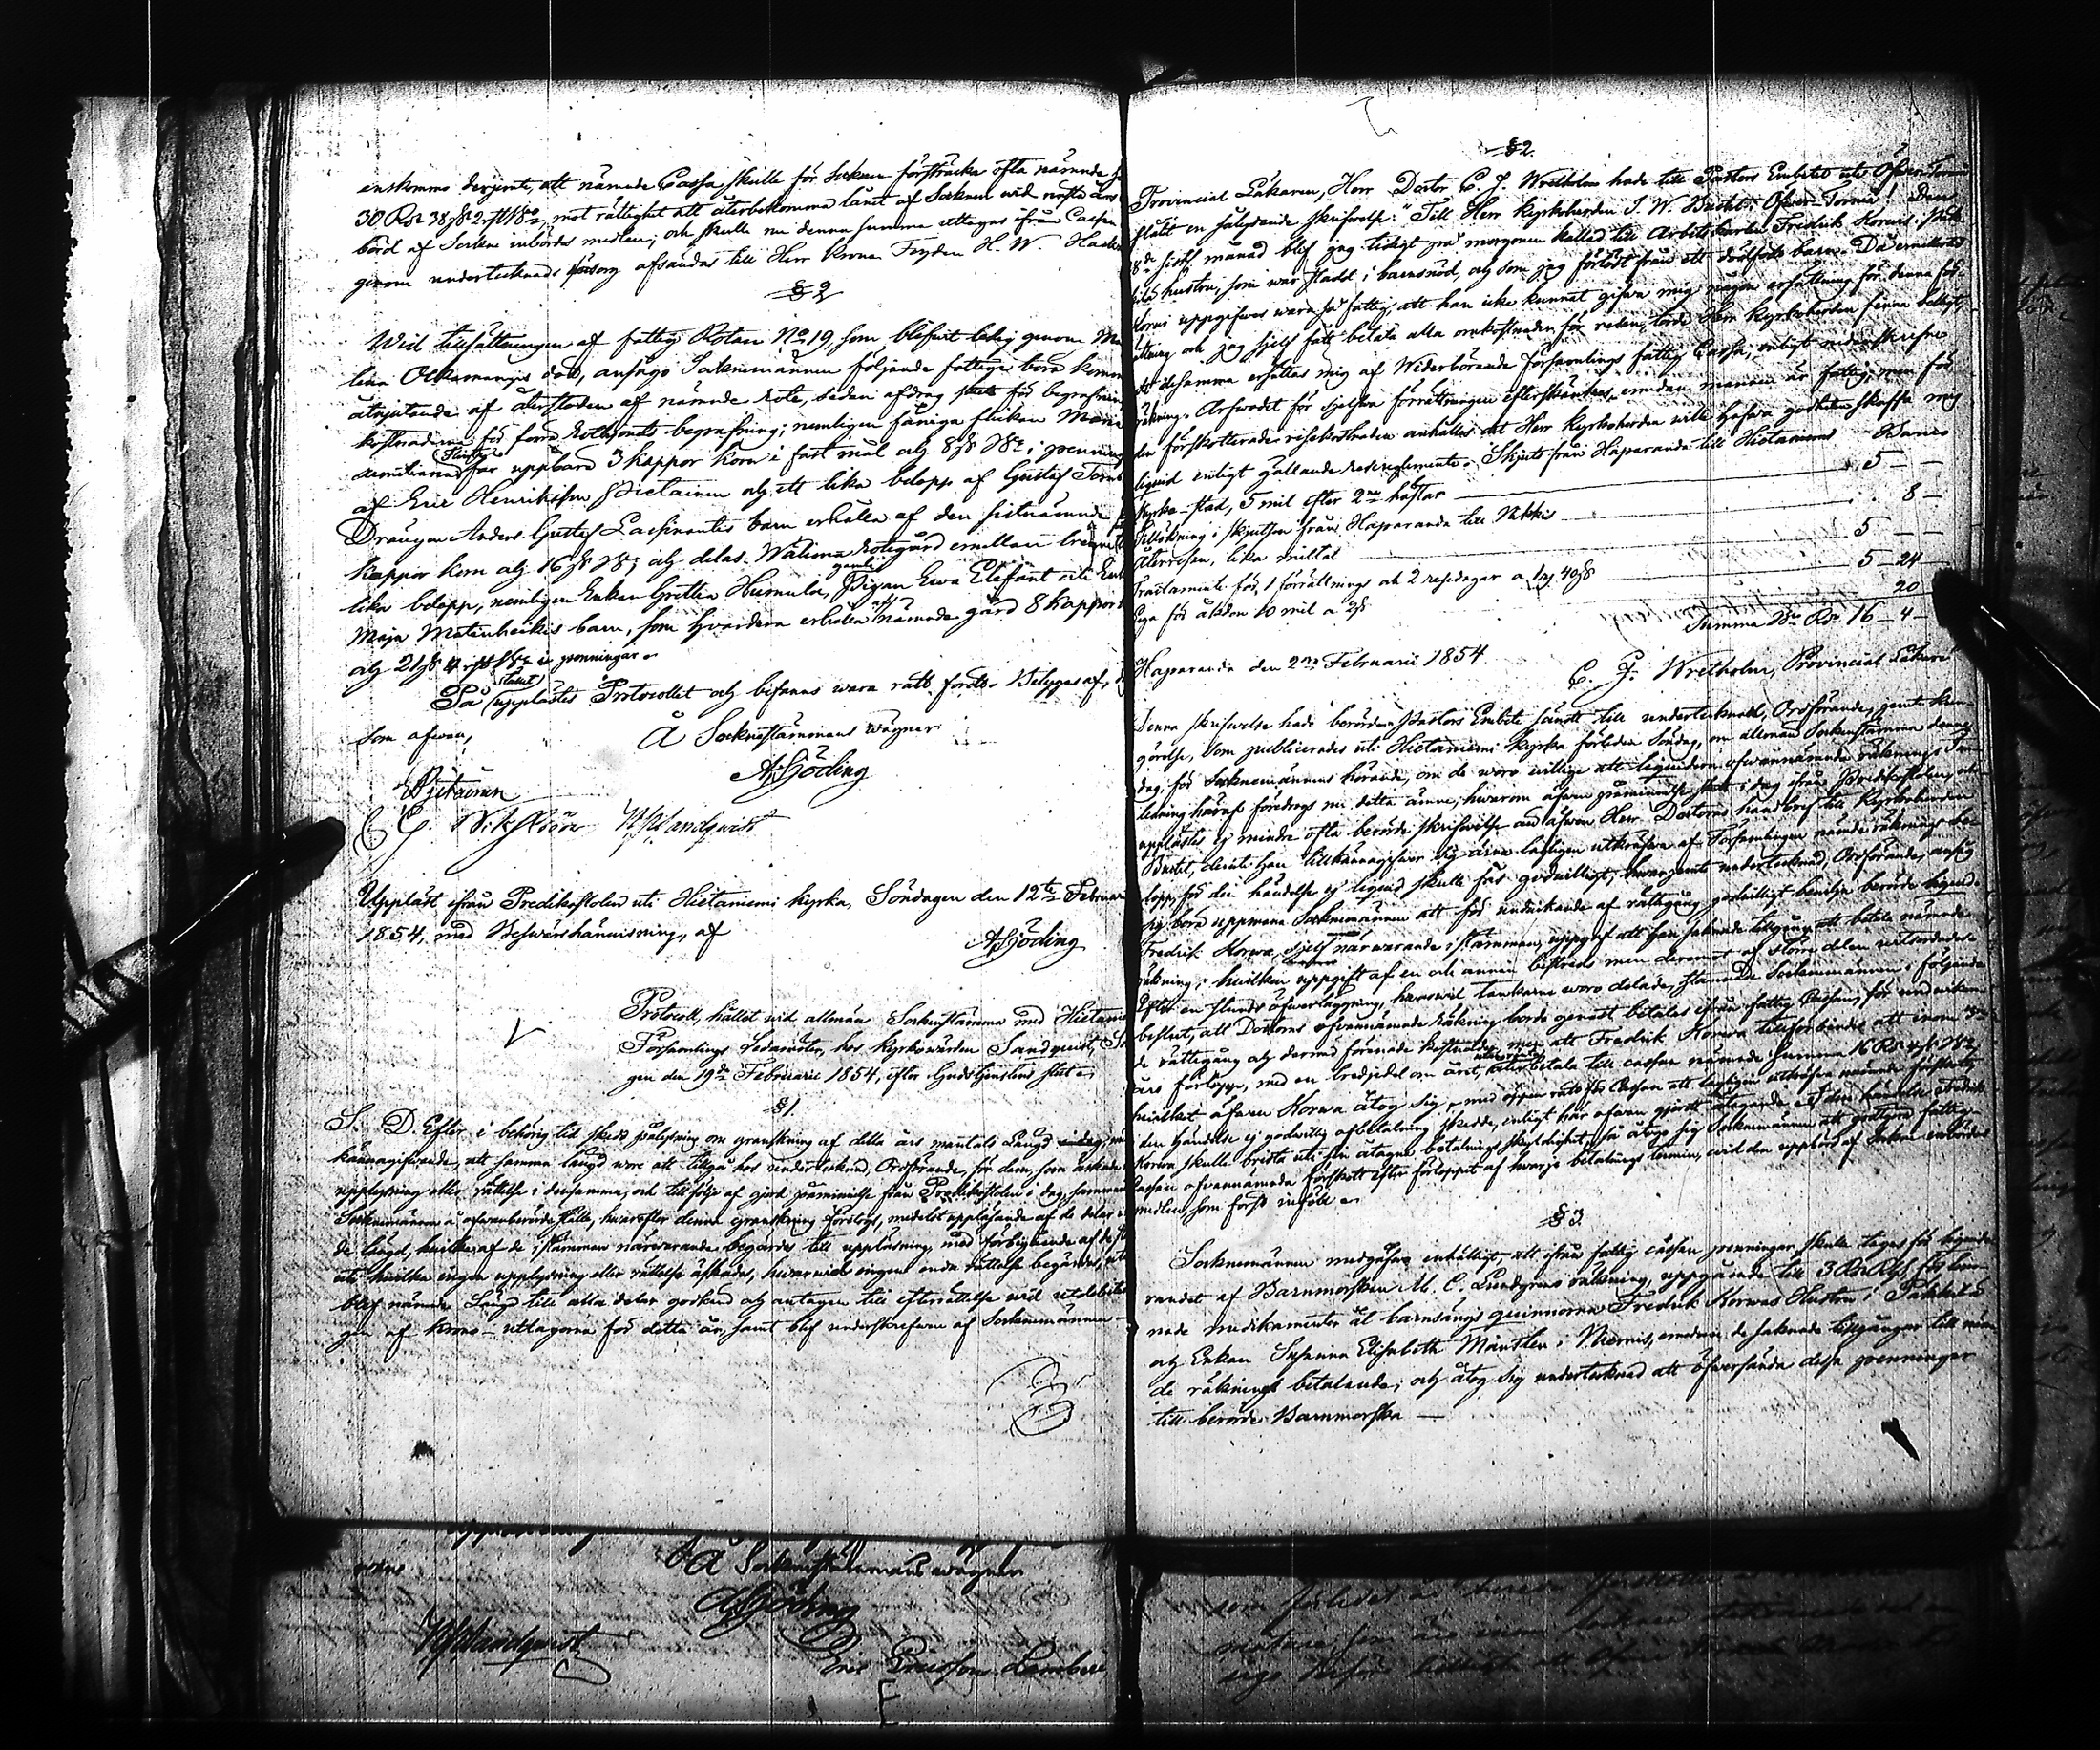 enskomme derjemte, att nämnde Cassa skulle för Socknen försträcka ofta nämnde
30 Rdr 38 sk 2 rst Bco, mot rättighet att återbekomma lånet af Socknen wid nästa års
börd af Sockne inbördes medlen; och skulle nu denna summa uttagas ifrån Cassan
genom undertecknads försorg afsändas till Herr Krono Fogden H. W.
§ 2
Wid tillsättningen af fattig Rotan No 19, som blifwit ledig genom
lena Ockamangis död, ansågo Socknemännen följande fattige böra komma
åtnjutande af återstoden af nämnde rote, sedan afdrag skett för begrafnings
kostnaderna för förra Rothjonets begrafning; nemligen fåniga flickan Maria
får uppbära 3 kappor Korn i fast mål och 8 sk Bco i penningar
af Eric Henriksson Pietainen och ett lika belopp af Gustaf
Drängen Anders Gustaf Lassinanttis barn erhålla af den sistnämnde
kappor korn och 16 sk Bco; och delas Walima Rotegård emellan trenne
lika belopp, nemligen Enkan Gretha Humula, Pigan Ewa Elefant och Enkan
Maja Matinheikis barn, som hwardera erhålla af nämnde gård 8 kappor
och 21 sk 4 rst Bco i penningar.
På stället upplästes Protocollet och befanns wara rätt fördt. Betygas af,
Som ofwan,
Å Socknestämmans wägnar
A. Göding
Pietainen
C. G. Wikström N. Sandqwist
Uppläst ifrån Predikostolen uti Hietaniemi kyrka, Söndagen den 12te Februari
1854, med Beswärshänwisning, af
A. Göding
Protocoll, hållet wid allmän Sockenstämma med Hietaniemi
Församlings Ledamöter, hos Kyrkowärden Sandqwist,
gen den 19de Februarii 1854, efter Gudstjenstens slut.
§ 1.
S. D. Efter i behörig tid skedd pålysning om granskning af detta års mantals Längd
kännagifwande, att samma längd wore att tillgå hos undertecknad, Ordförande, för dem, som äskade
upplysning eller rättelse i densamma, och till följe af gjord påminnelse från Predikostolen i dag, sammanträdde
Socknemännen å ofwanberörde ställe, hwarefter denna granskning företogs, medelst uppläsande af de delar i
de längd, hwilka af de i stämman närwarande begärdes till uppläsning med förbigående af de
uti hwilka ingen upplysning eller rättelse äskades, hwarwid ingen enda rättelse begärdes, utan
blef nämnde Längd till alla delar godkänd och antagen till efterrättelse wid utdebiterin
gen af krono-utlagorna för detta år, samt blef underskrefwen af Socknemännen
§ 2.
Provincial Läkaren, Herr Doctor C. J. Wretholm hade till Pastors Embetet uti Öfwer-Torneå
aflåtit en sålydande skrifwelse: "Till Herr Kyrkoherden J. W. Bucht i Öfwer-Torneå! Den
8de sistl. månad blef jag tidigt på morgonen kallad till Arbetskarlen Fredrik Korwas
hustru, som war stadd i barnsnöd, och som jag förlöst från ett dödfödt barn. Då emellertid
Korwa uppgifwes wara så fattig, att han icke kunnat gifwa mig någon ersättning för denna för-
rättning och jag sjelf fått betala alla omkostnader för resan, torde Herr Kyrkoherden finna billigt,
att desamma ersättas mig af Wederbörande församlings fattig Cassa, enligt nedanskrefne
räkning. Arfwodet för sjelfwa förrättningen efterskänkes, emedan mannen är fattig; men för
den förskotterade resekostnaden anhålles det Herr Kyrkoherden wille hafwa godheten skaffa mig
liquid enligt gällande Resereglemente. Skjuts från Haparanda till Hietaniemi Banco
Kyrko-stad, 5 mil efter 2ne hästar 5 — —
Tillökning i skjutsen från Haparanda till 8 —
Återresan, lika miltal 5 — —
Tractamente för 1 förrättnings och 2 resedagar a 1 rd 40 sk 5 — 24
Lega för åkdon 10 mil a 2 sk 20
Summa Bco Rdr 16 — 4 —
Haparanda den 2dra Februarii 1854
C. J. Wretholm, Provincial Läkare
Denna skrifwelse hade berörde Pastors Embete sändt till undertecknad, Ordförande, jemte kun-
görelse, som publicerades uti Hietaniemi kyrka förleden Söndag, om allmän Sockenstämma denna
dag, för Socknemännens hörande, om de woro willige att liquidera ofwannämnde räkning. I an-
ledning häraf föredrogs nu detta ämne, hwarom äfwen påminnelse skett i dag ifrån Predikstolen, och
upplästes ej mindre ofta berörde skrifwelse än äfwen Herr Doctorns handbref till Kyrkoherden
Bucht, deruti han tillkännagifwer sig ärna lagligen utkräfwa af Församlingen nämnde räknings be-
lopp, för den händelse ej liquid skulle fås godwilligt, hwarjemte undertecknad, Ordförande, ansåg
sig böra uppmana Socknemännen att för undwikande af rättegång godwilligt bewilja berörde liquid.
Fredrik Korwa, sjelf närwarande i stämman, uppgaf att han saknade tillgång att betala nämnde
räkning, hwilken uppgift af en och annan bestreds men deremot af större delen witsordades.
Efter en stunds öfwerläggning, hwarwid tankarne woro delade, stannade Socknemännen i följande
beslut, att Doctorns ofwannämnde Räkning borde genast betalas ifrån fattig Cassan, för undwikan-
de rättegång och dermed förenade kostnader, men att Fredrik Korwa tillförbindes att inom 3ne
års förlopp, med en tredjedel om året, återbetala till cassan nämnde summa 16 Rdr 4 sk Bco,
hwilket äfwen Korwa åtog sig, med öppen rätt för Cassan att lagligen utkräfwa nämnde förskott, i
den händelse ej godwillig afbetalning skedde, enligt här ofwan gjordt åtagande. I den händelse Fredrik
Korwa skulle brista uti sin åtagne betalnings skyldighet, så åtogo sig Socknemännen att godtgöra fattig
Cassan ofwannämnda förskott efter förloppet af hwarje betalnings termin, wid den uppbörd af Sockne inbördes
medlen, som först inföll.
§ 3.
Socknemännen medgåfwo enhälligt, att ifrån fattig cassan penningar skulle tagas för liquide-
randet af Barnmorskan M. C. Lundgrens räkning, uppgående till 3 Rdr Rgs, för läm-
nade medikamenter åt barnsängs quinnorna Fredrik Korwas Hustru i
och Enkan Susanna Elisabeth Mäntten i Niemis, emedan de saknade tillgångar till nämn-
de räknings betalande; och åtog sig undertecknad att öfwersända dessa penningar
till berörde Barnmorska —
Å Sockenstämmans wägnar
A. Göding
N. Sandqwist
Eric Ersson Lamberi